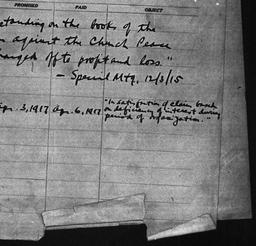 PROMISED PAID OBJECT
standing on the books of the
against the Church Peace
charged off to profit and loss."
— Special Mtg, 12/3/15
Apr. 3, 1917 Apr. 6, 1917 "In satisfaction of claim based
on deficiency of interest during
period of organization."